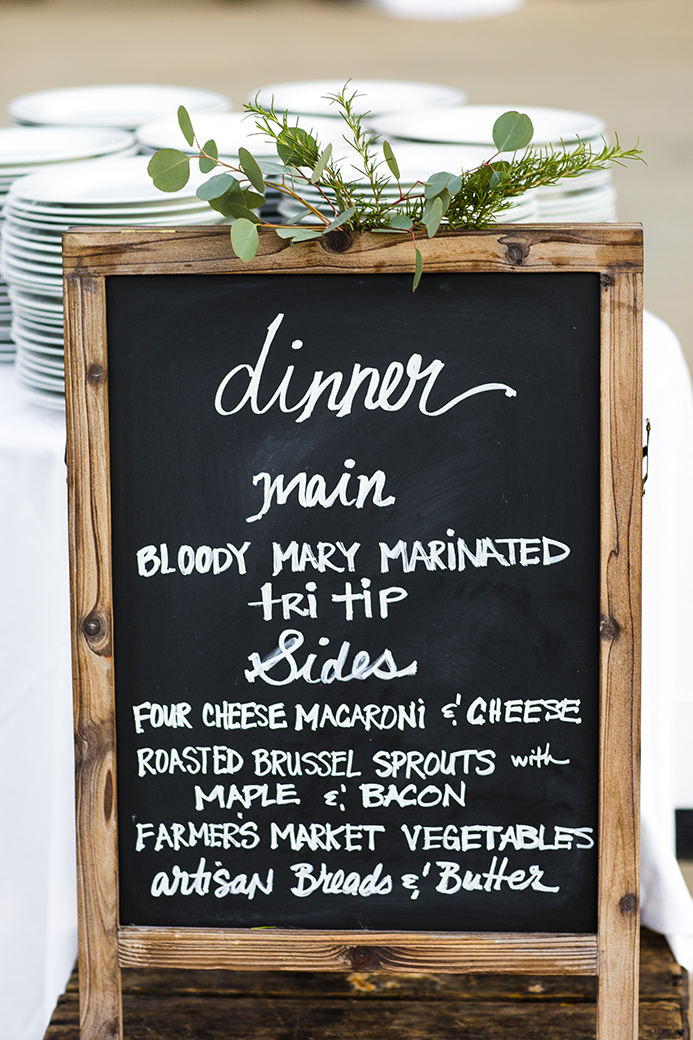 dinner
main
BLOODY MARY MARINATED
TRI TIP
Sides
FOUR CHEESE MACARONI & CHEESE
ROASTED BRUSSEL SPROUTS with
MAPLE & BACON
FARMER'S MARKET VEGETABLES
artisan Breads & Butter